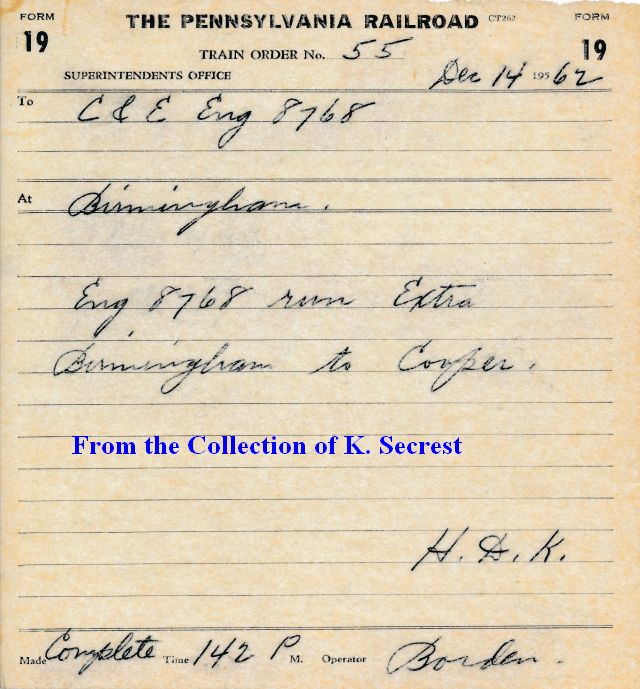 FORM 19 THE PENNSYLVANIA RAILROAD CT262 FORM 19
TRAIN ORDER No. 55
SUPERINTENDENTS OFFICE Dec 14 195 62
To C & E Eng 8768
At Birmingham.
Eng 8768 run Extra
Birmingham to Cooper.
From the Collection of K. Secrest
H. D. K.
Made Complete Time 142 P M. Operator Borden.